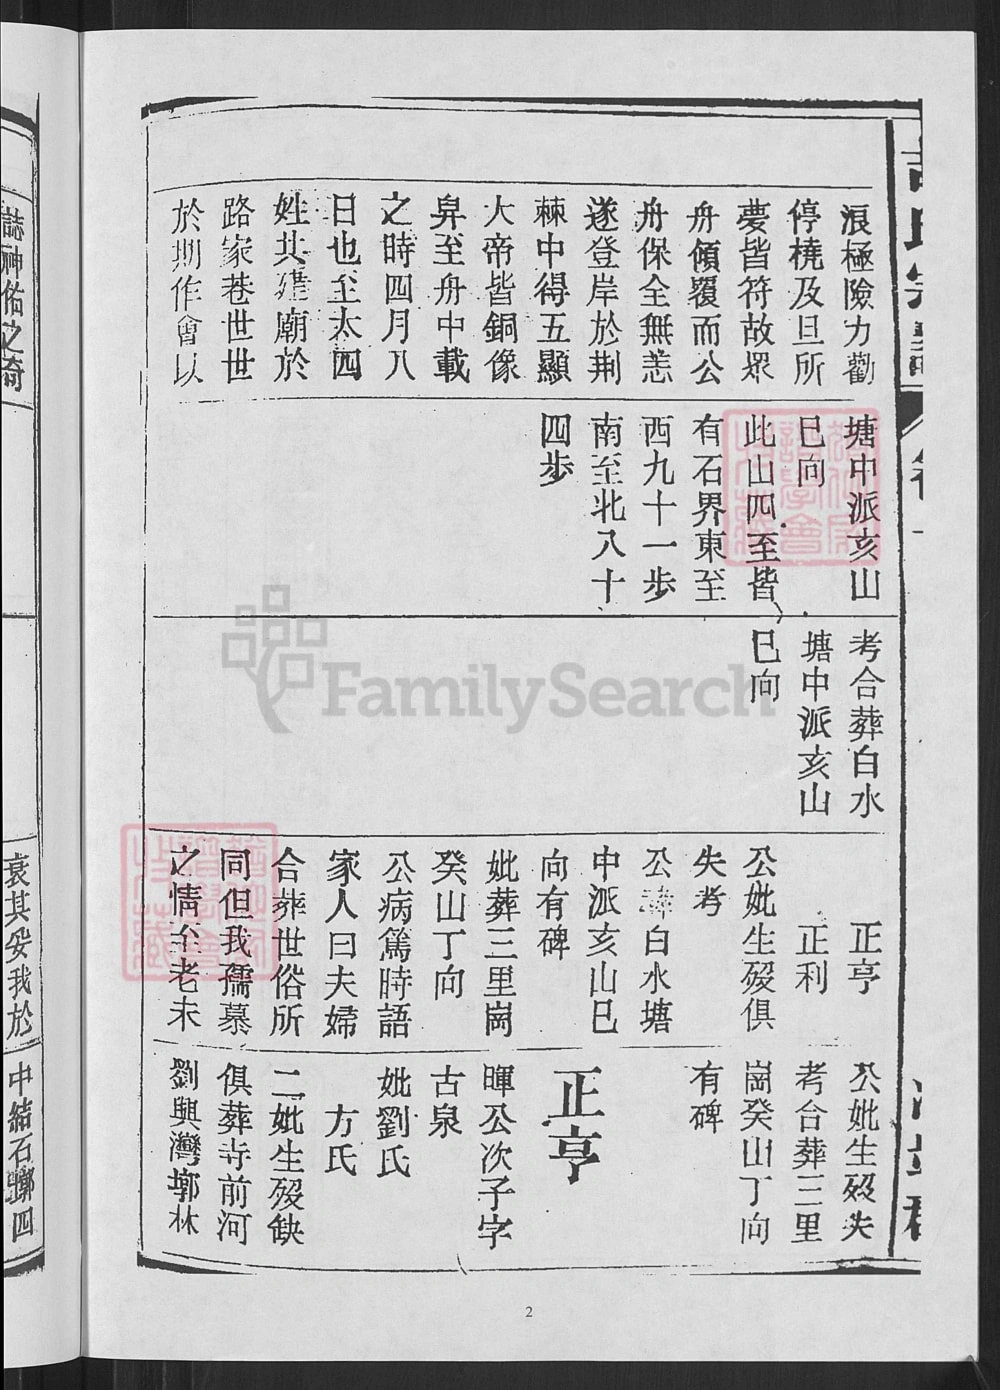 浪極險力勸
停橈及旦所
夢皆符故眾
舟傾覆而公
舟保全無恙
遂登岸於荆
棘中得五顯
大帝皆銅像
舁至舟中載
之時四月八
日也至太四
姓共建廟於
路家巷世世
於期作會以
塘中派亥山
巳向
此山四至皆
有石界東至
西九十一步
南至北八十
四步
考合葬白水
塘中派亥山
巳向
正亨
正利
公妣生殁俱
失考
公葬白水塘
中派亥山巳
向有碑
妣葬三里崗
癸山丁向
公病篤時語
家人曰夫婦
合葬世俗所
同但我孺慕
之情至老未
公妣生殁失
考合葬三里
崗癸山丁向
有碑
正亨
暉公次子字
古泉
妣劉氏
方氏
二妣生殁缺
俱葬寺前河
劉興灣墎林
誌神佑之奇
衰其妥我於
中結石槨四
FamilySearch
2